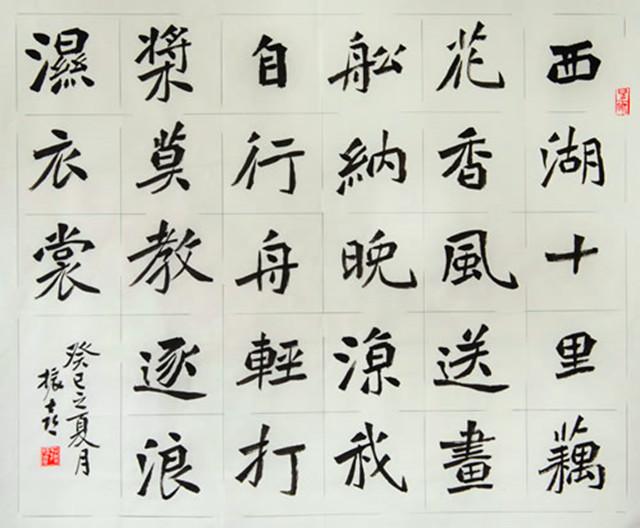 西湖十里藕
花香風送畫
舩納晚涼我
自行舟輕打
槳莫教逐浪
濕衣裳
癸巳之夏月
振